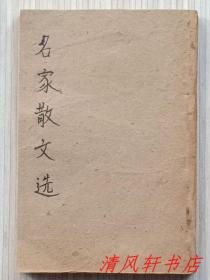 名家散文选
清风轩书店